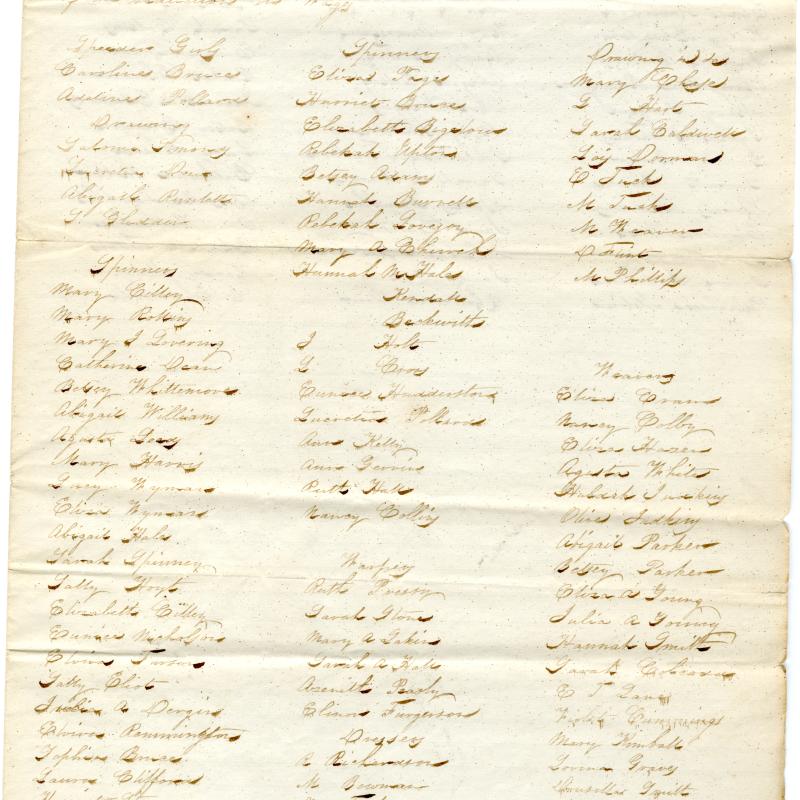 Speeder Girls
Caroline Bruce
Adeline Pollard
Drawing
Saloma Simons
Lucretia Dow
Abigail Rundlett
S. Glidden
Spinners
Mary Cilley
Mary Robins
Mary J Lovering
Catherine Dean
Betsey Whittemore
Abigail Williams
Agusta Loog
Mary Harris
Lucy Wyman
Eliza Wyman
Abigail Hale
Sarah Spinney
Sally Hoyt
Elizabeth Cilley
Eunice Nicholson
Elvira Turner
Sally Eliot
Julia A Dergin
Elvira Remmington
Sophia Bruce
Laura Clifford
Spinners
Eliza Page
Harriet Bruce
Elizabeth Bigelow
Rebekah Upton
Betsey Adams
Hannah Burnett
Rebekah Lovejoy
Mary A
Hannah M Hale
Kendall
Beckwith
J Holt
L Cross
Eunice Hudderston
Lucretia Pollard
Ann Kelly
Ann Gervin
Ruth Hall
Nancy Collins
Warpers
Ruth Pressy
Sarah Stone
Mary A Dakin
Sarah A Hall
Asenith Peasly
Elinor Furgerson
Dressers
R Richardson
M Bowman
Drawing
Mary
G Hart
Sarah Caldwell
Lois Dorman
E Tuck
M Tuck
M Weaver
D Flint
M Phillips
Weavers
Eliza Crane
Nancy Colby
Eliza Hazen
Agusta White
Olive
Abigail Parker
Betsey Parker
Eliza A Young
Julia A Young
Hannah Smith
Sarah
E T Lane
Cummings
Mary Kimball
Lovina Graves
Smith